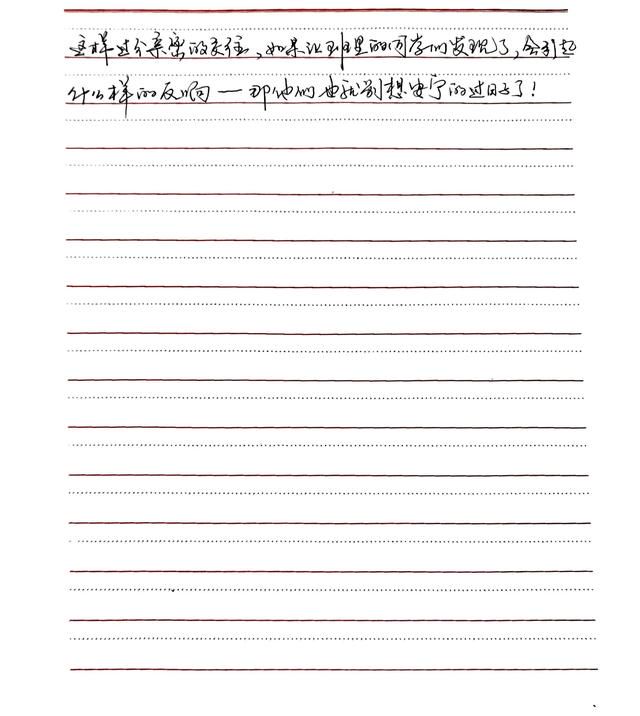 这样过分亲密的交往，如果让班里的同学们发现了，会引起
什么样的反响——那他们也就别想安宁的过日子了！